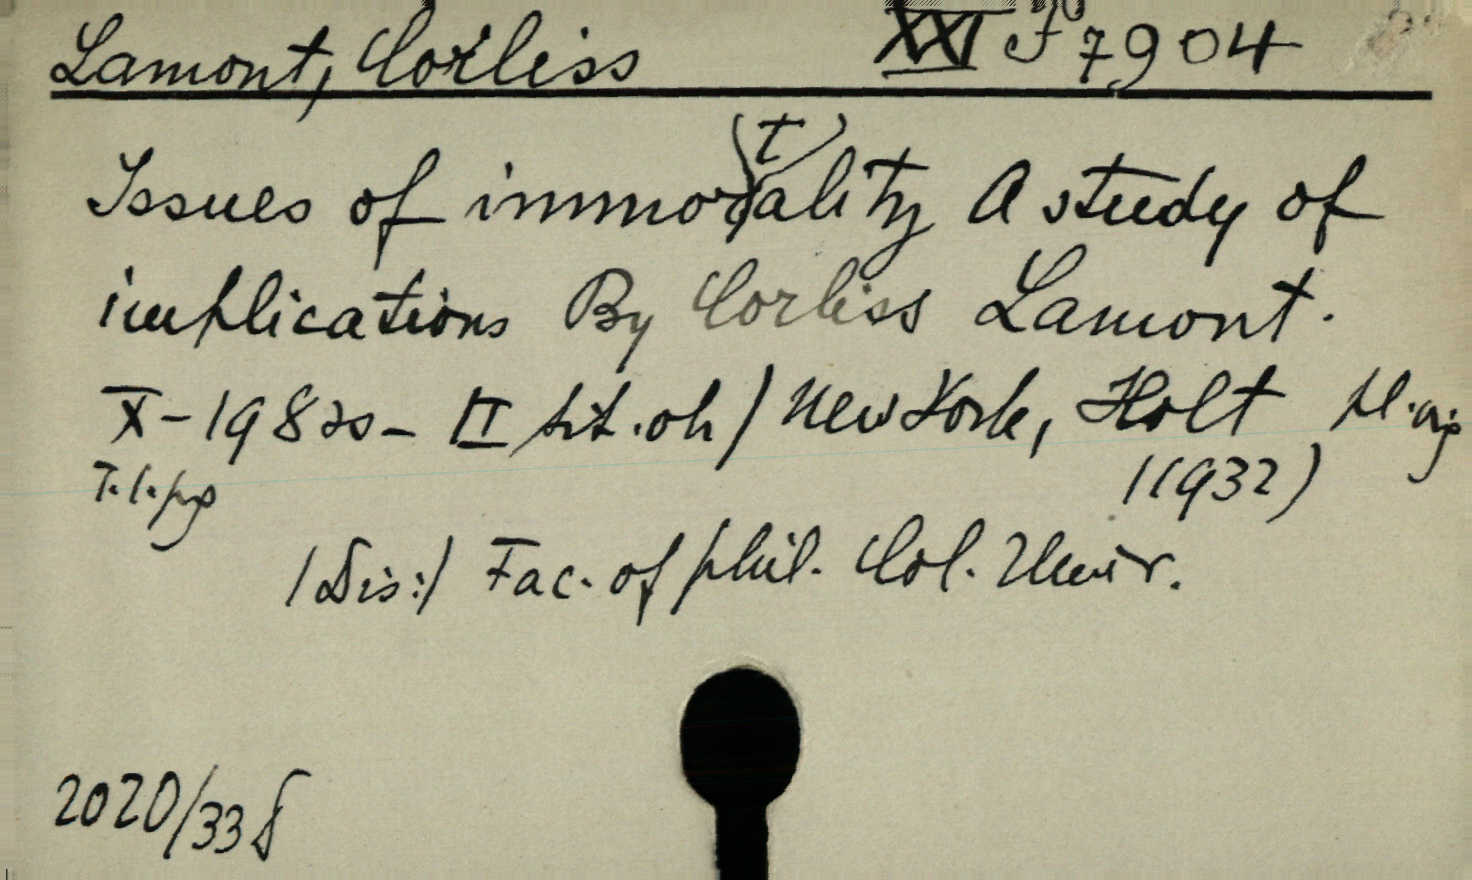 Lamont, Corliss XXI F 7904
Issues of immortality A study of
implications By Corliss Lamont.
X-198 - II / New York, Holt
1(1932)
/Dis:/ Fac. of phil. Col. Univ.
2020/33